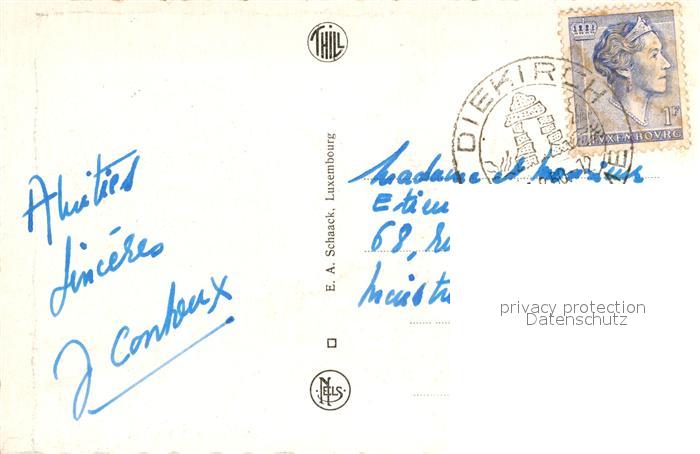 THILL
DIEKIRCH
1F
LUXEMBOURG
E. A. Schaack, Luxembourg
NELS
Amitiés
sincères
J Contoux
Madame et Monsieur
Etien
68, Ru
privacy protection
Datenschutz